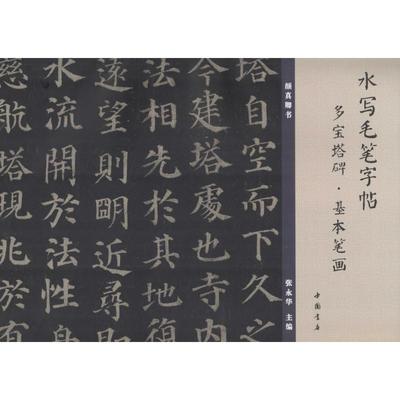 水写毛笔字帖
多宝塔碑·基本笔画
中国书店
颜真卿书
张永华 主编
塔自空而下久之
今建塔處也寺内
相先於其地復
遠望則眀近尋即
水流開於法性舟
慈航塔現兆於